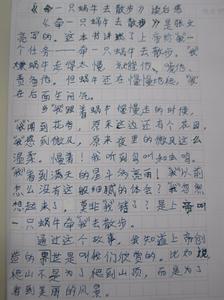 《牵一只蜗牛去散步》读后感
《牵一只蜗牛去散步》是张文
亮写的，这本书讲述了上帝给我一
个任务——牵一只蜗牛去散步。"我"
嫌蜗牛走得太慢，就催他、唬他、
责备他，但蜗牛还在慢慢地爬，"我"
在后面生闷气。
当我跟着蜗牛慢慢走的时候，
"我"闻到花香，原来这边还有个花园，
"我"感到微风，原来夜里的微风这么
温柔。慢着！"我"听到鸟叫和虫鸣，
"我"看到满天的星斗多亮丽！"我"以前
怎么没有这般细腻的体会？"我"忽然
想起来了，莫非"我"错了？是上帝叫
一只蜗牛牵"我"去散步。
通过这个故事，我知道上帝创
造的景是叫我们欣赏的。比如：
爬山不是为了爬到山顶，而是为了
看到美丽的风景。